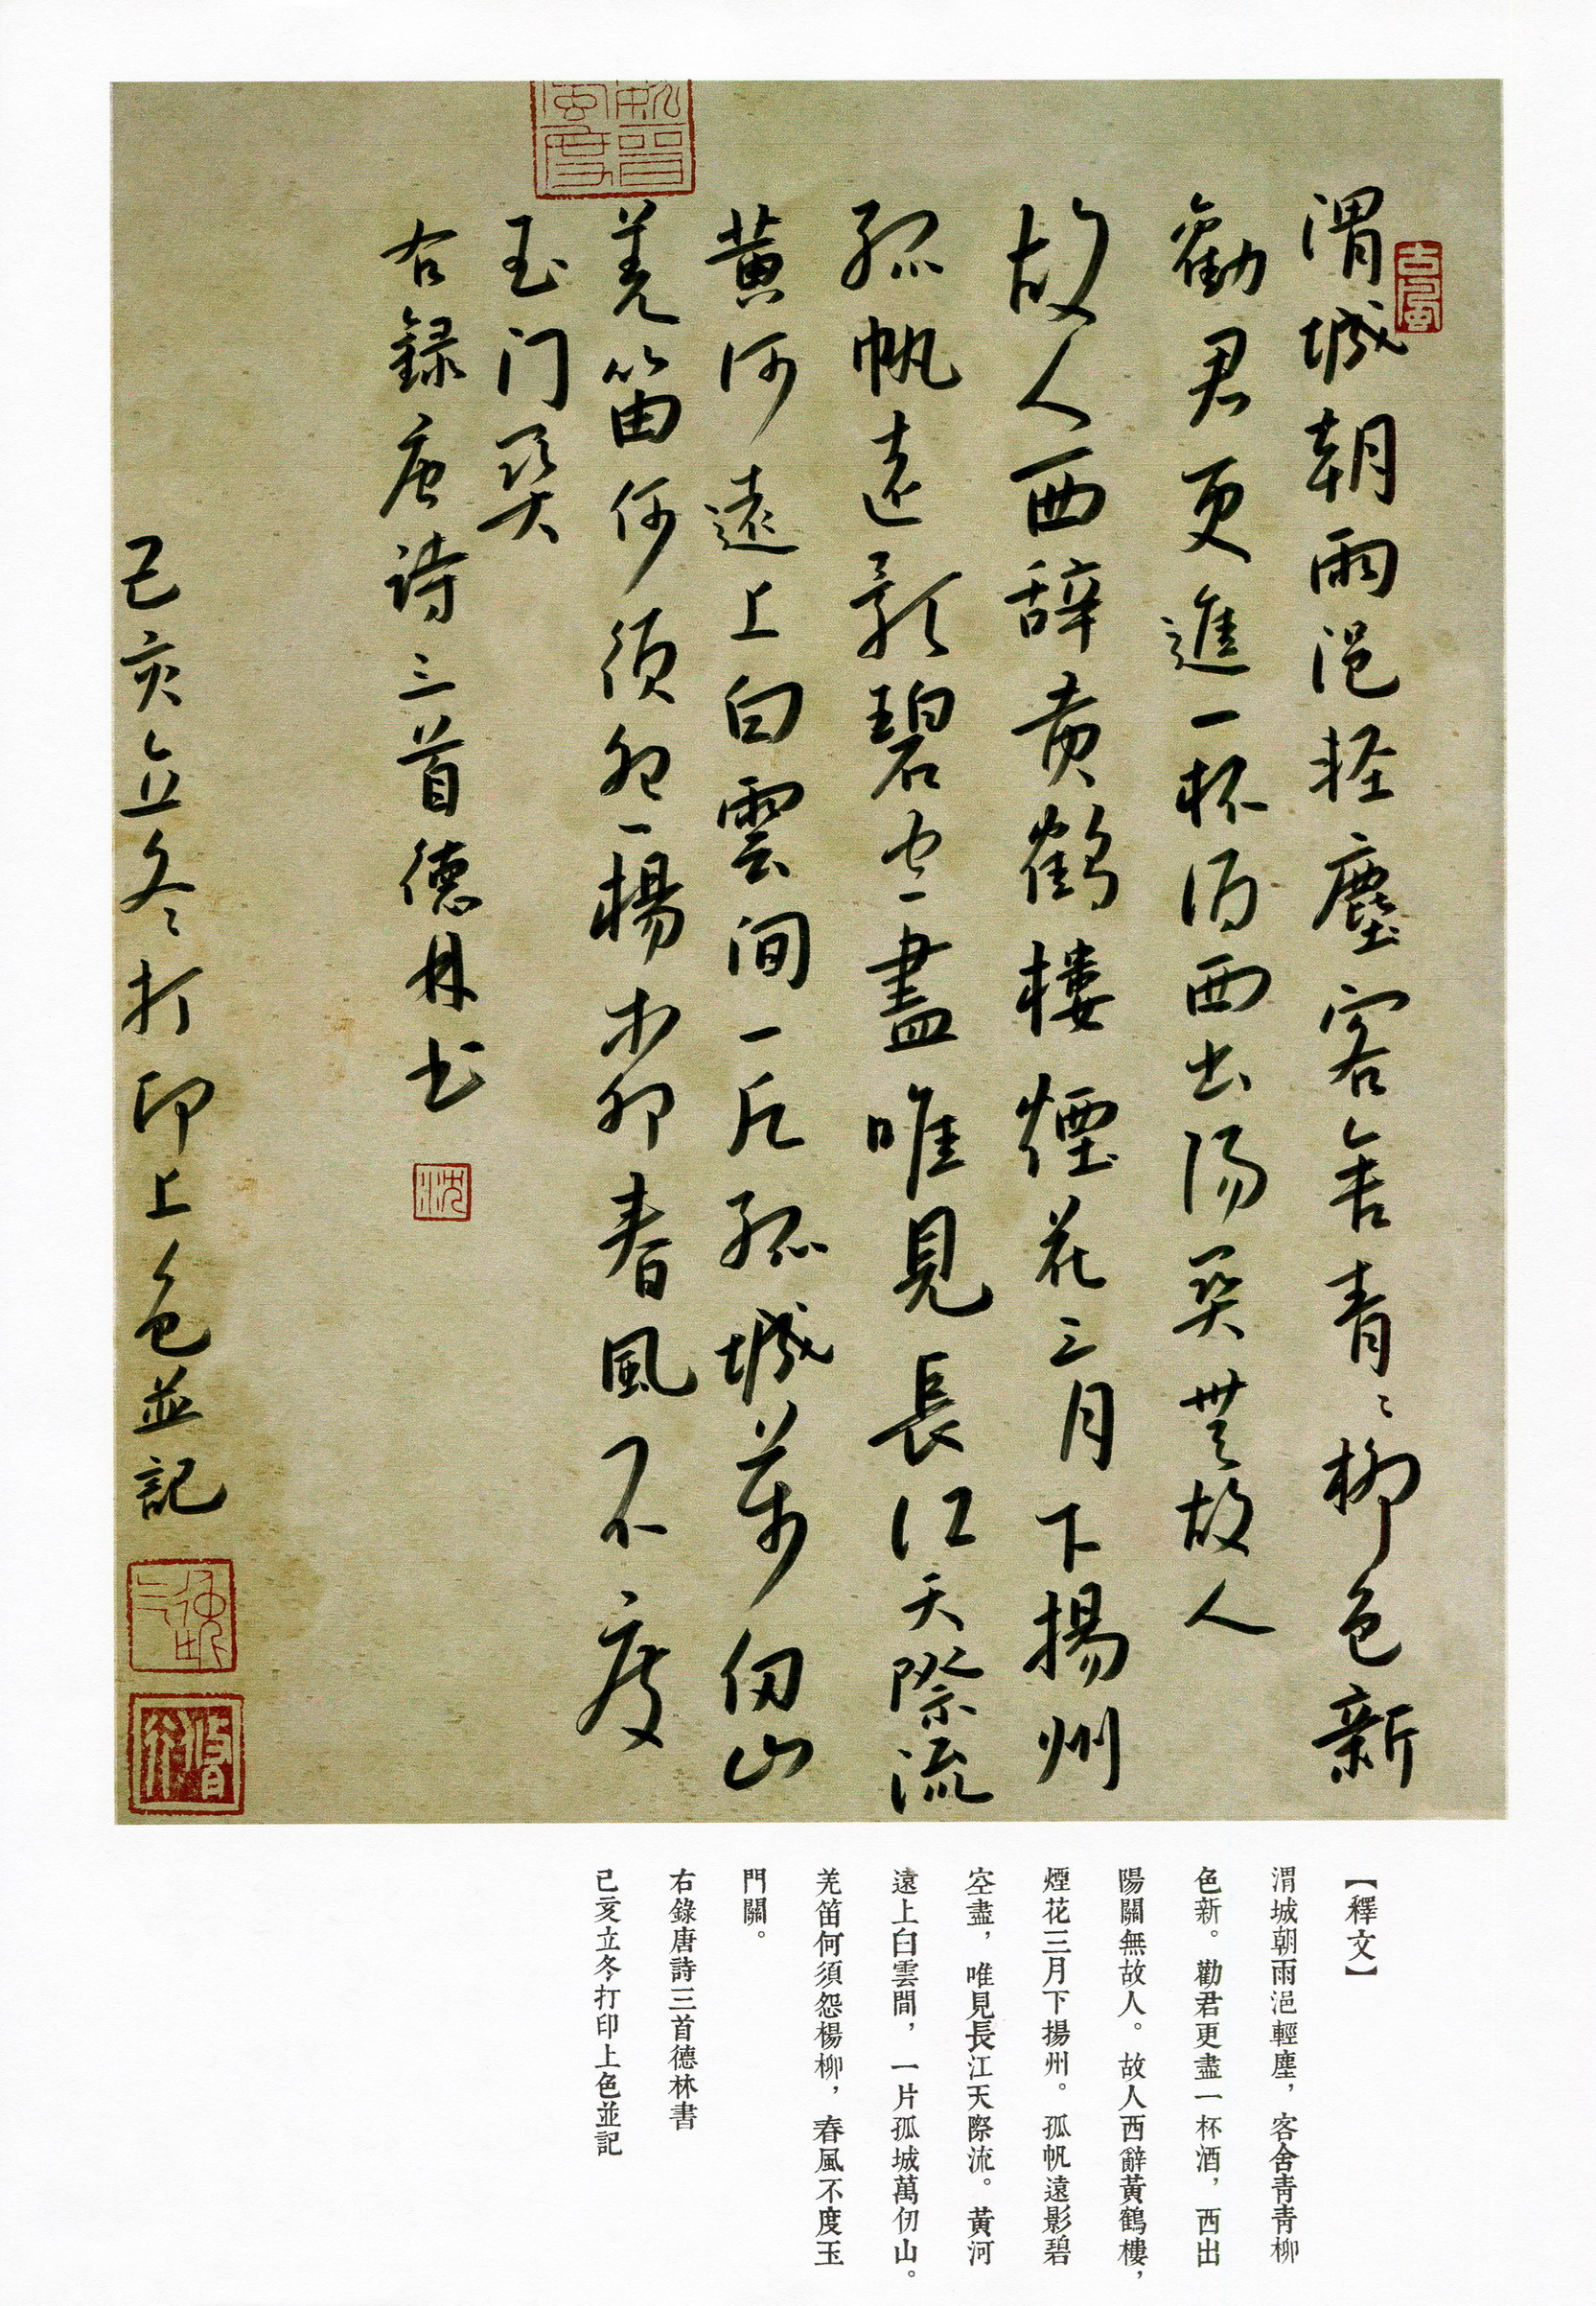 渭城朝雨浥輕塵客舍青〻柳色新
勸君更進一杯酒西出陽關無故人
故人西辞黄鶴樓煙花三月下揚州
孤帆遠影碧空盡唯見長江天際流
黄河遠上白雲间一片孤城萬仞山
羌笛何須怨楊柳春風不度
玉门關
右録唐詩三首德林书
己亥立冬打印上色並記
【釋文】
渭城朝雨浥輕塵，客舍青青柳
色新。勸君更盡一杯酒，西出
陽關無故人。故人西辭黃鶴樓，
煙花三月下揚州。孤帆遠影碧
空盡，唯見長江天際流。黃河
遠上白雲間，一片孤城萬仞山。
羌笛何須怨楊柳，春風不度玉
門關。
右錄唐詩三首德林書
己亥立冬打印上色並記